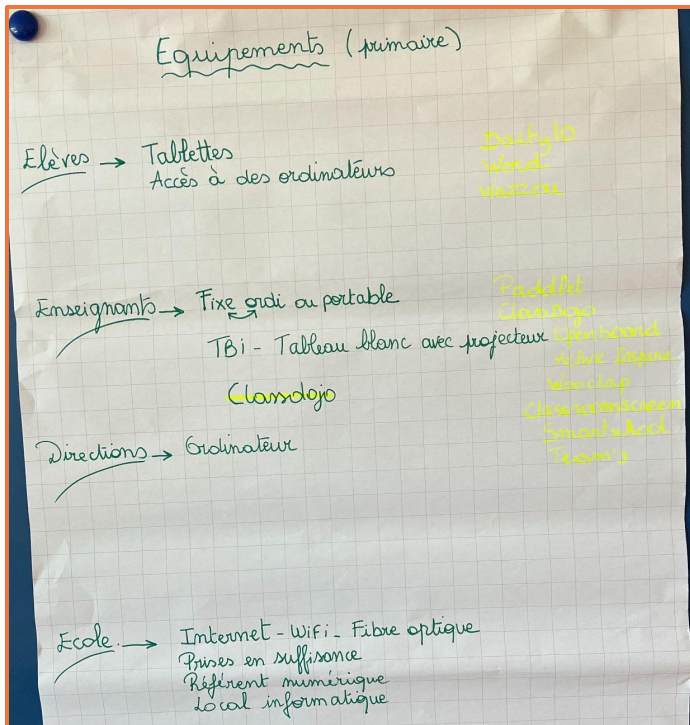 Equipements (primaire)
Elèves → Tablettes
Accès à des ordinateurs
Dactylo
Word
Wazzou
Enseignants → Fixe ordi ou portable
TBi - Tableau blanc avec projecteur
Classdojo
Paddlet
ClassDojo
Openboard
Active Inspire
Wooclap
Classroomscreen
Smartschool
Team's
Directions → Ordinateur
Ecole. → Internet - WiFi - Fibre optique
Prises en suffisance
Référent numérique
Local informatique